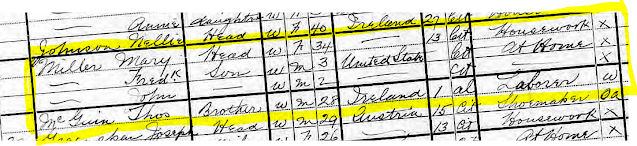 — Annie daughter W
Johnson Nellie Head W F 40 Ireland 27 Cit Housework X
Miller Mary Head W F 34 — 13 Cit Housework X
— Fredk Son W M 3 United States Cit At Home X
— John — W M 2 — Cit —
McGuin Thos Brother W M 28 Ireland 1 al Laborer W
Joseph Head W M 29 Austria 15 Cit Shoemaker Oa
F 26 — 13 Cit Housework X
At Home X